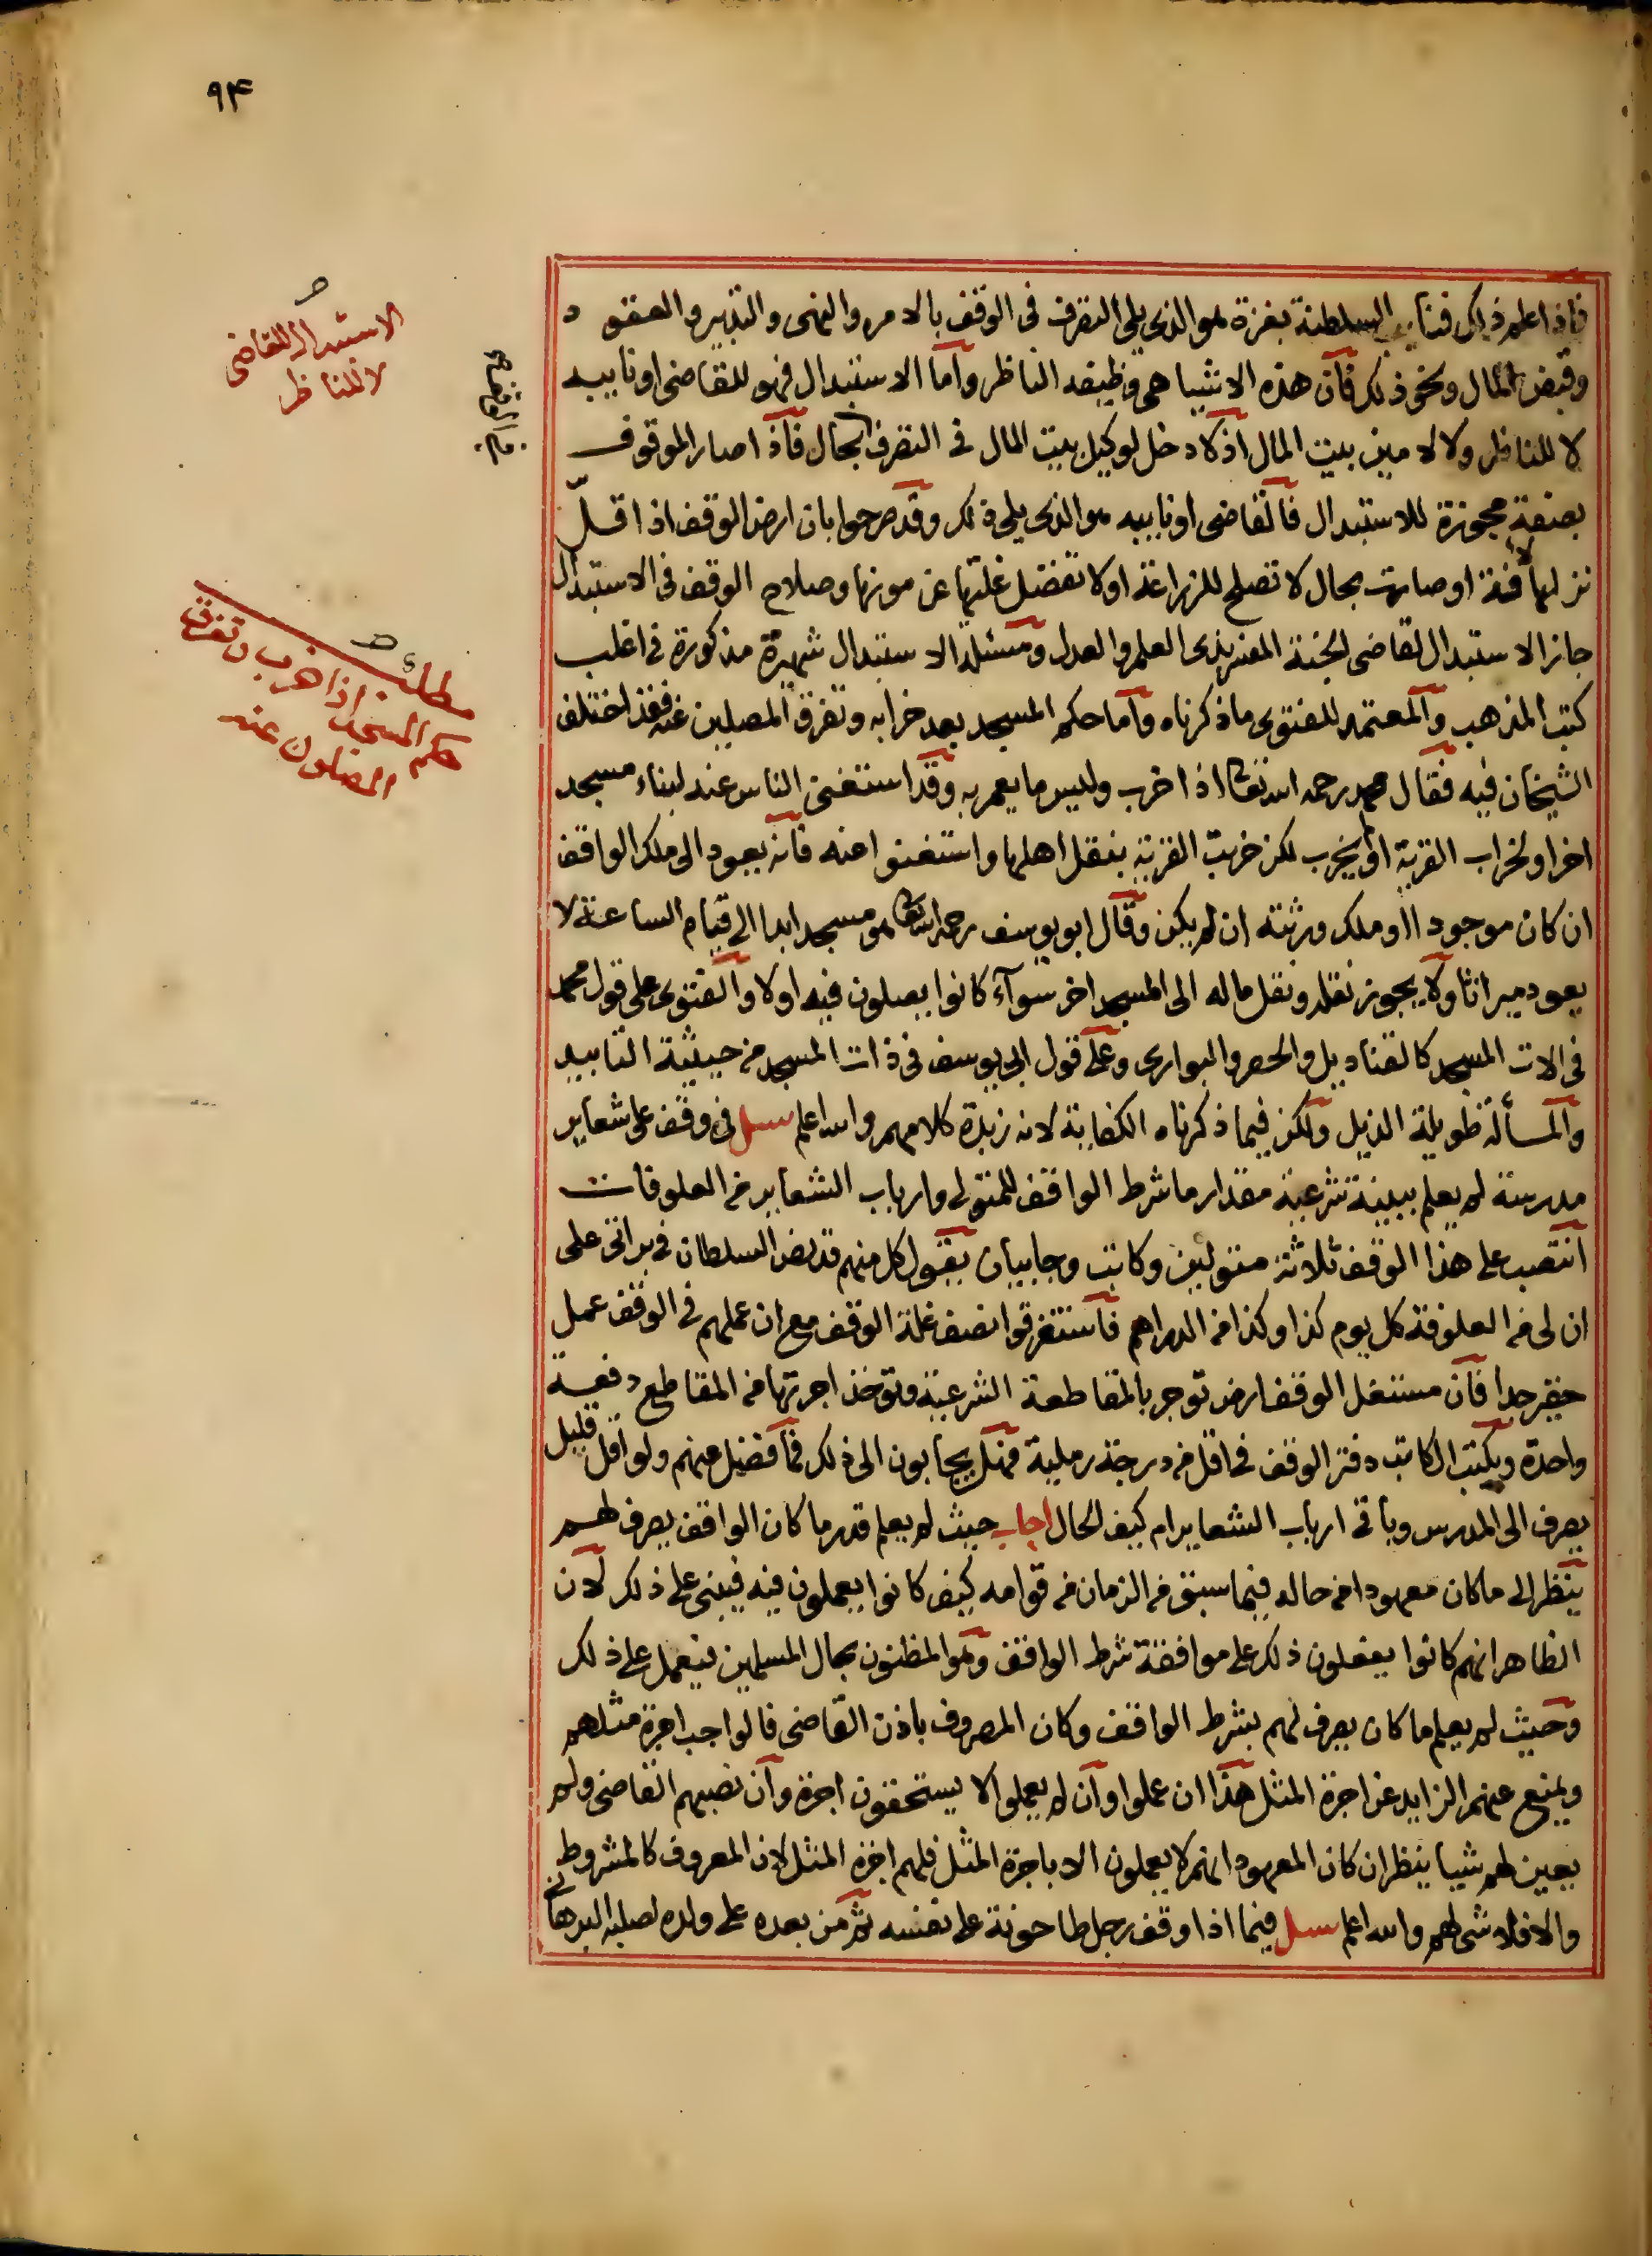 ٩٤
فاذا علم ذلك فنايب السلطنة بغزة هو الذى يلى التصرف فى الوقف بالامر والنهى والتدبير والعقود
وقبض المال ونحو ذلك فان هذه الاشيا هى وظيفه الناظر واما الاستبدال فهو للقاضى او نايبه
لا للناظر ولا لامين بيت المال اذ لا دخل لوكيل بيت المال فى التصرف بحال فاذا صار الموقوف
بصفة مجوزة للاستبدال فالقاضى او نايبه هو الذى يلى ذلك وقد صرحوا بان ارض الوقف اذا قلّ
نزلها لافة او صارت بحال لا تصلح للزراعة او لا تفضل غلتها عن مونها وصلاح الوقف فى الاستبدال
جاز الاستبدال لقاضى الجنة المفسر بذى العلم والعدل ومسئلة الاستبدال شهيرة مذكورة فى اغلب
كتب المذهب والمعتمد للفتوى ما ذكرناه واما حكم المسجد بعد خرابه وتفرق المصلين عنه فقد اختلف
الشيخان فيه فقال محمد رحمه الله تعالى اذا خرب وليس ما يعمر به وقد استغنى الناس عنه لبناء مسجد
اخر او لخراب القرية او لم يخرب لكن خربت القرية بنقل اهلها واستغنوا عنه فانه يعود الى ملك الواقف
ان كان موجودا او ملك ورثته ان لم يكن وقال ابو يوسف رحمه الله تعالى هو مسجد ابدا الى قيام الساعة لا
يعود ميراثا ولا يجوز نقله ونقل ماله الى المسجد اخر سوآء كانوا يصلون فيه اولا والفتوى على قول محمد
فى الات المسجد كالقناديل والحصر والبوارى وعلى قول ابى يوسف فى ذات المسجد من حيثية التابيد
والمسألة طويلة الذيل ولكن فيما ذكرناه الكفاية لانه زبدة كلامهم والله اعلم سئل فى وقف على شعاير
مدرسة لم يعلم ببينة شرعية مقدار ما شرط الواقف للمتولى وارباب الشعاير من العلوفات
انتصب على هذا الوقف ثلاثة متولين وكاتب وجابيان يقول كل منهم قد نص السلطان فى براتى على
ان لى من العلوفة كل يوم كذا وكذا من الدراهم فاستغرقوا نصف غلة الوقف مع ان عملهم فى الوقف عمل
حقير جدا فان مستغل الوقف ارض توجر بالمقاطعة الشرعية وتوخذ اجرتها من المقاطع دفعة
واحدة ويكتب الكاتب دفتر الوقف فى اقل من درجة رملية فهل يجابون الى ذلك فما فضل عنهم ولو اقل قليل
يصرف الى المدرس وباقى ارباب الشعاير ام كيف الحال اجاب حيث لم يعلم قدر ما كان الواقف يصرف لهم
ينظر الى ما كان معهودا من حاله فيما سبق من الزمان من قوامه كيف كانوا يعملون فيه فيبنى على ذلك لان
الظاهر انهم كانوا يفعلون ذلك على موافقة شرط الواقف وهو المظنون بحال المسلمين فيعمل على ذلك
وحيث لم يعلم ما كان يصرف لهم بشرط الواقف وكان المصروف باذن القاضى فالواجب اجرة مثلهم
ويمنع عنهم الزايد عن اجرة المثل هذا ان عملوا وان لم يعملوا لا يستحقون اجرة وان نصبهم القاضى ولم
يعين لهم شيا ينظر ان كان المعهود انهم لا يعملون الا باجرة المثل فلهم اجرة المثل لان المعروف كالمشروط
والا فلا شى لهم والله اعلم سئل فيما اذا وقف رجل طاحونة على نفسه ثم من بعده على ولده لصلبه البرهانى
الاستبدال للقاضى
لا للناظر
مطلب
حكم المسجد اذا خرب وتفرق
المصلون عنه